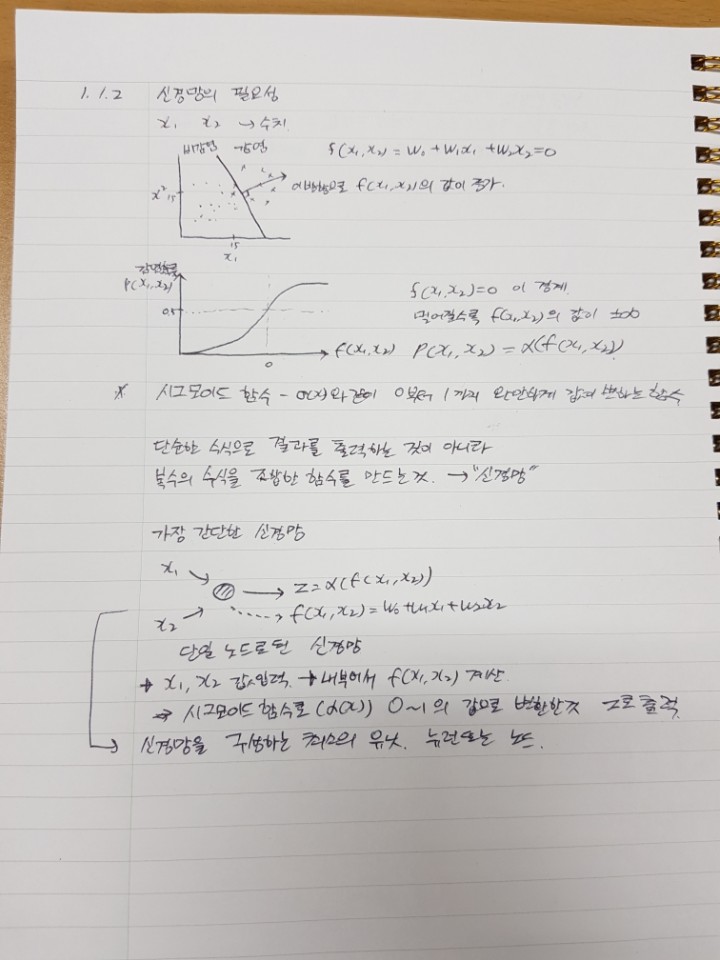 1.1.2 신경망의 필요성
x₁ x₂ → 수치
비감염 감염 f(x₁,x₂) = w₀ + w₁x₁ + w₂x₂ = 0
이 방향으로 f(x₁,x₂)의 값이 증가.
x² 15
15
x₁
감염확률
P(x₁,x₂)
f(x₁,x₂)=0 이 경계.
0.5
멀어질수록 f(x₁,x₂)의 값이 ±∞
0
f(x₁,x₂) P(x₁,x₂) = α(f(x₁,x₂))
* 시그모이드 함수 - σ(x)와 같이 0부터 1까지 완만하게 값이 변하는 함수
단순한 수식으로 결과를 출력하는 것이 아니라
복수의 수식을 조합한 함수를 만드는 것. → "신경망"
가장 간단한 신경망
x₁
→ z = α(f(x₁,x₂))
→ f(x₁,x₂) = w₀+w₁x₁+w₂x₂
x₂
단일 노드로 된 신경망
→ x₁, x₂ 값 입력. → 내부에서 f(x₁,x₂) 계산.
→ 시그모이드 함수로 (α(x)) 0~1의 값으로 변환한 것 z로 출력
신경망을 구성하는 최소의 유닛. 뉴런 또는 노드.